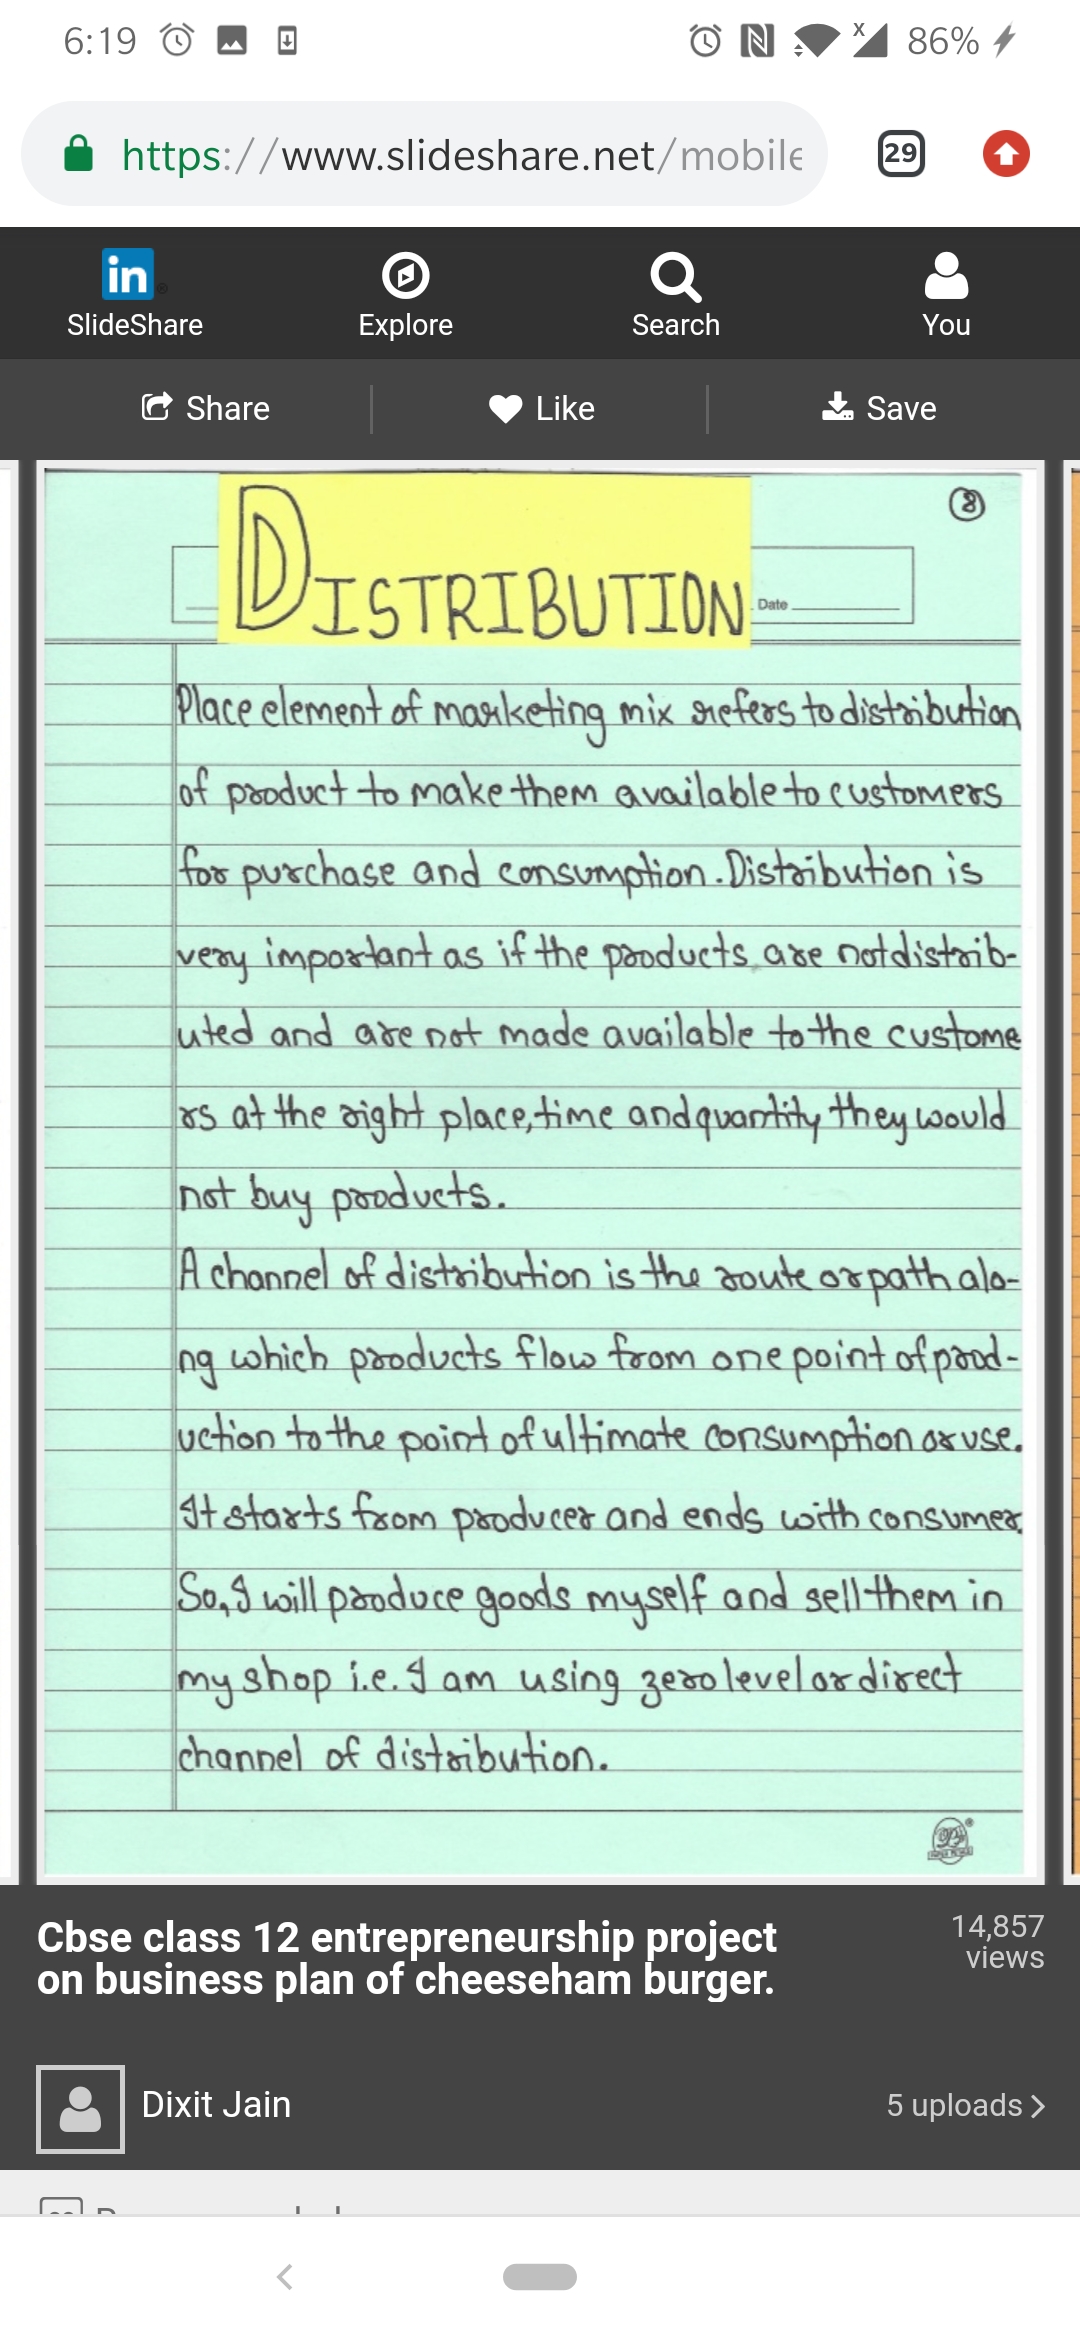 6:19
86%
https://www.slideshare.net/mobile
29
in
SlideShare
Explore
Search
You
Share
Like
Save
8
DISTRIBUTION
Date
Place element of marketing mix refers to distribution
of product to make them available to customers
for purchase and consumption. Distribution is
very important as if the products are not distrib-
uted and are not made available to the custome
rs at the right place, time and quantity they would
not buy products.
A channel of distribution is the route or path alo-
ng which products flow from one point of prod-
uction to the point of ultimate consumption or use.
It starts from producer and ends with consumer.
So, I will produce goods myself and sell them in
my shop i.e. I am using zero level or direct
channel of distribution.
Cbse class 12 entrepreneurship project
on business plan of cheeseham burger.
14,857
views
Dixit Jain
5 uploads